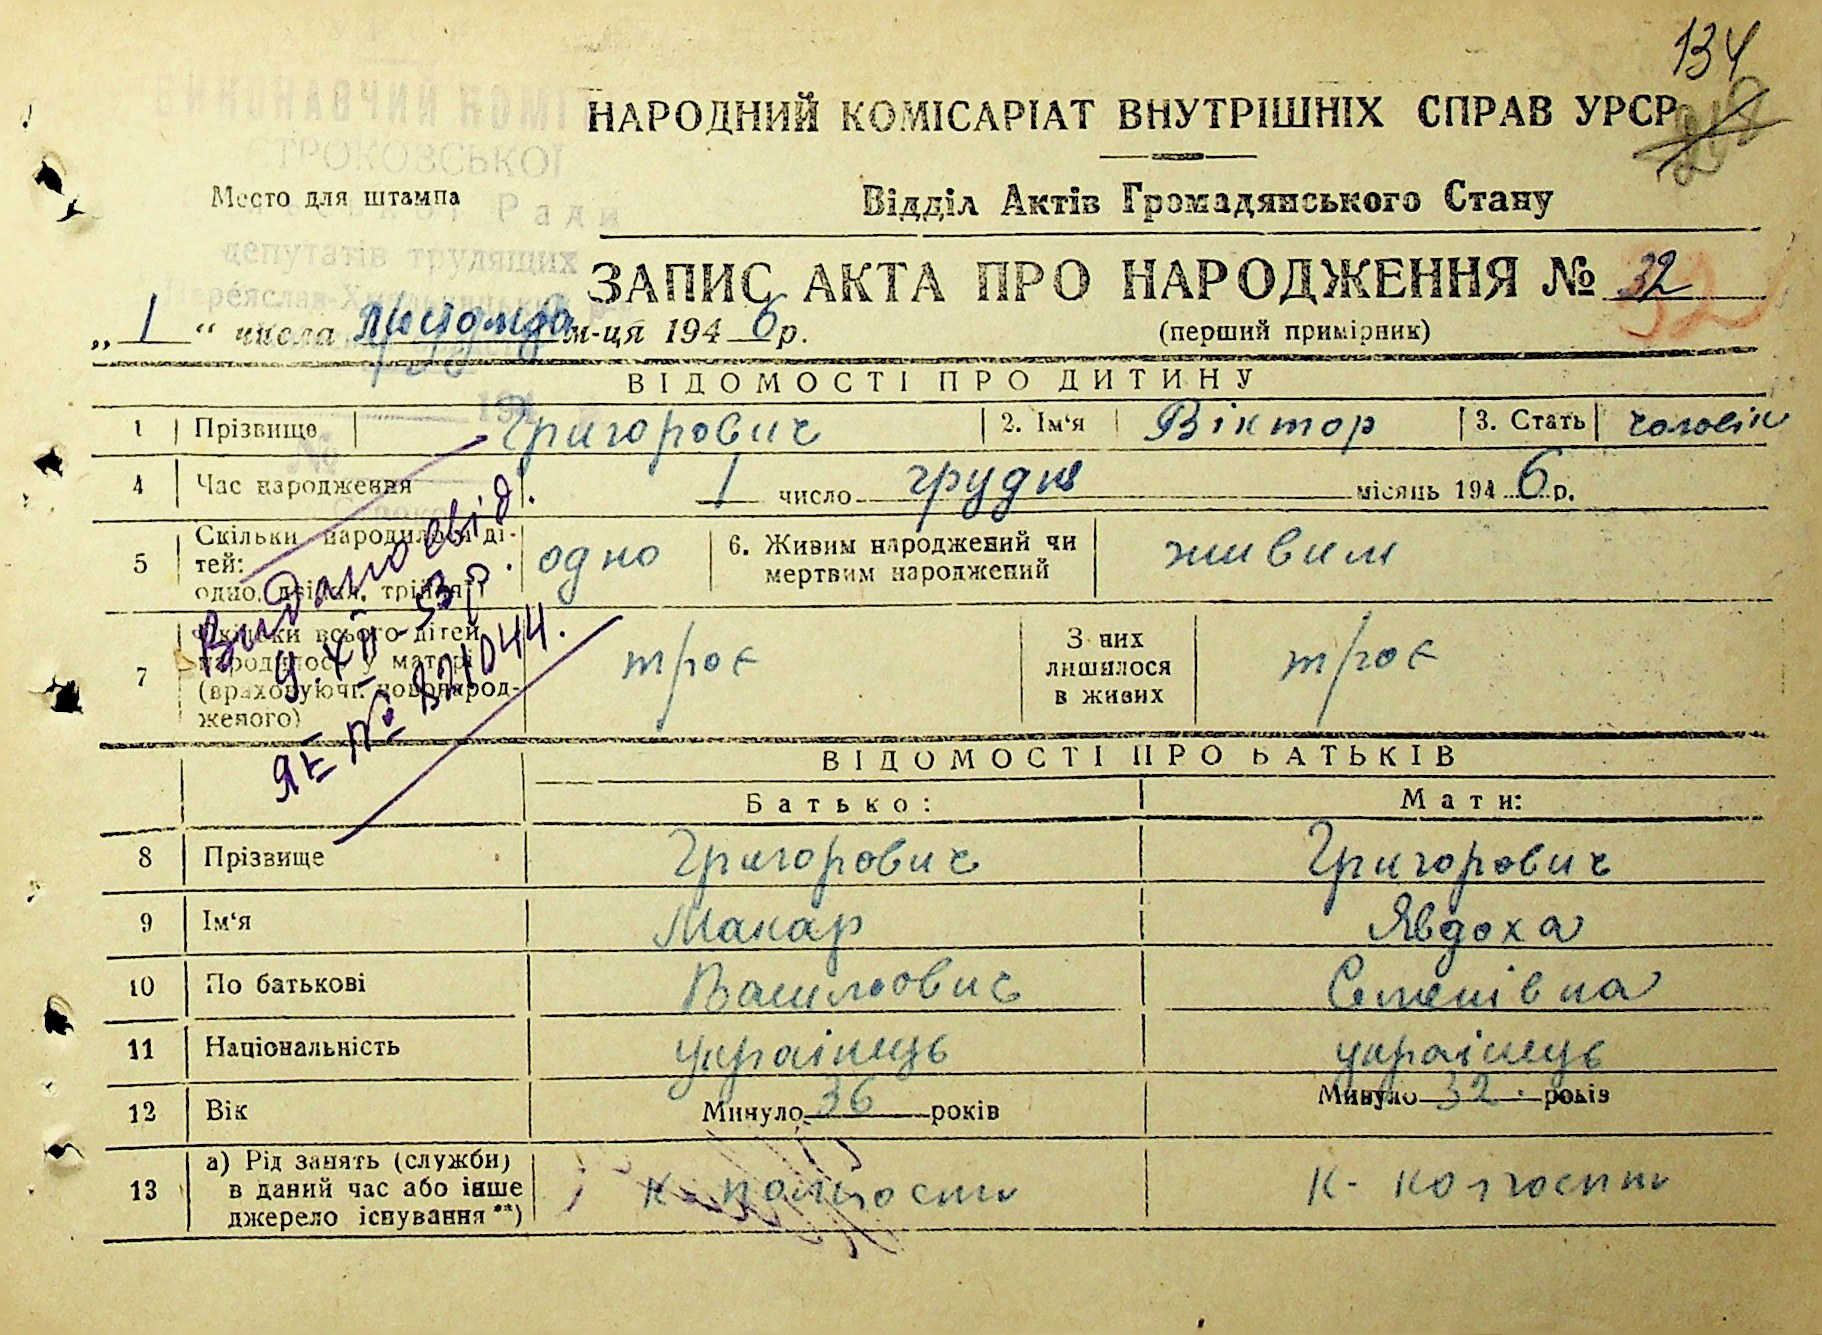 134
НАРОДНИЙ КОМІСАРІАТ ВНУТРІШНІХ СПРАВ УРСР
СТРОКОВСЬКОЇ
Место для штампа
Ради
Відділ Актів Громадянського Стану
депутатів трудящих
ЗАПИС АКТА ПРО НАРОДЖЕННЯ № 32
32
„ 1 “ числа листопада м-ця 194 6 р.
(перший примірник)
ВІДОМОСТІ ПРО ДИТИНУ
1 Прізвище Григорович 2. Ім‘я Віктор 3. Стать чоловік
4 Час народження 1 число грудня місяць 194 6 р.
5 Скільки народилося ді-
тей:
одно, двійня, трійня одно 6. Живим народжений чи
мертвим народжений живим
7 Скільки всього дітей
народилось у матері
(враховуючи новонарод-
женого) троє З них
лишилося
в живих троє
Видано свід.
9.XII-53р.
ЯЕ № 821044.
ВІДОМОСТІ ПРО БАТЬКІВ
Батько: Мати:
8 Прізвище Григорович Григорович
9 Ім‘я Макар Явдоха
10 По батькові Васильович Семенівна
11 Національність українець українець
12 Вік Минуло 36 років Минуло 32 років
13 а) Рід занять (служби)
в даний час або інше
джерело існування **) к- колгоспи к- колгоспи